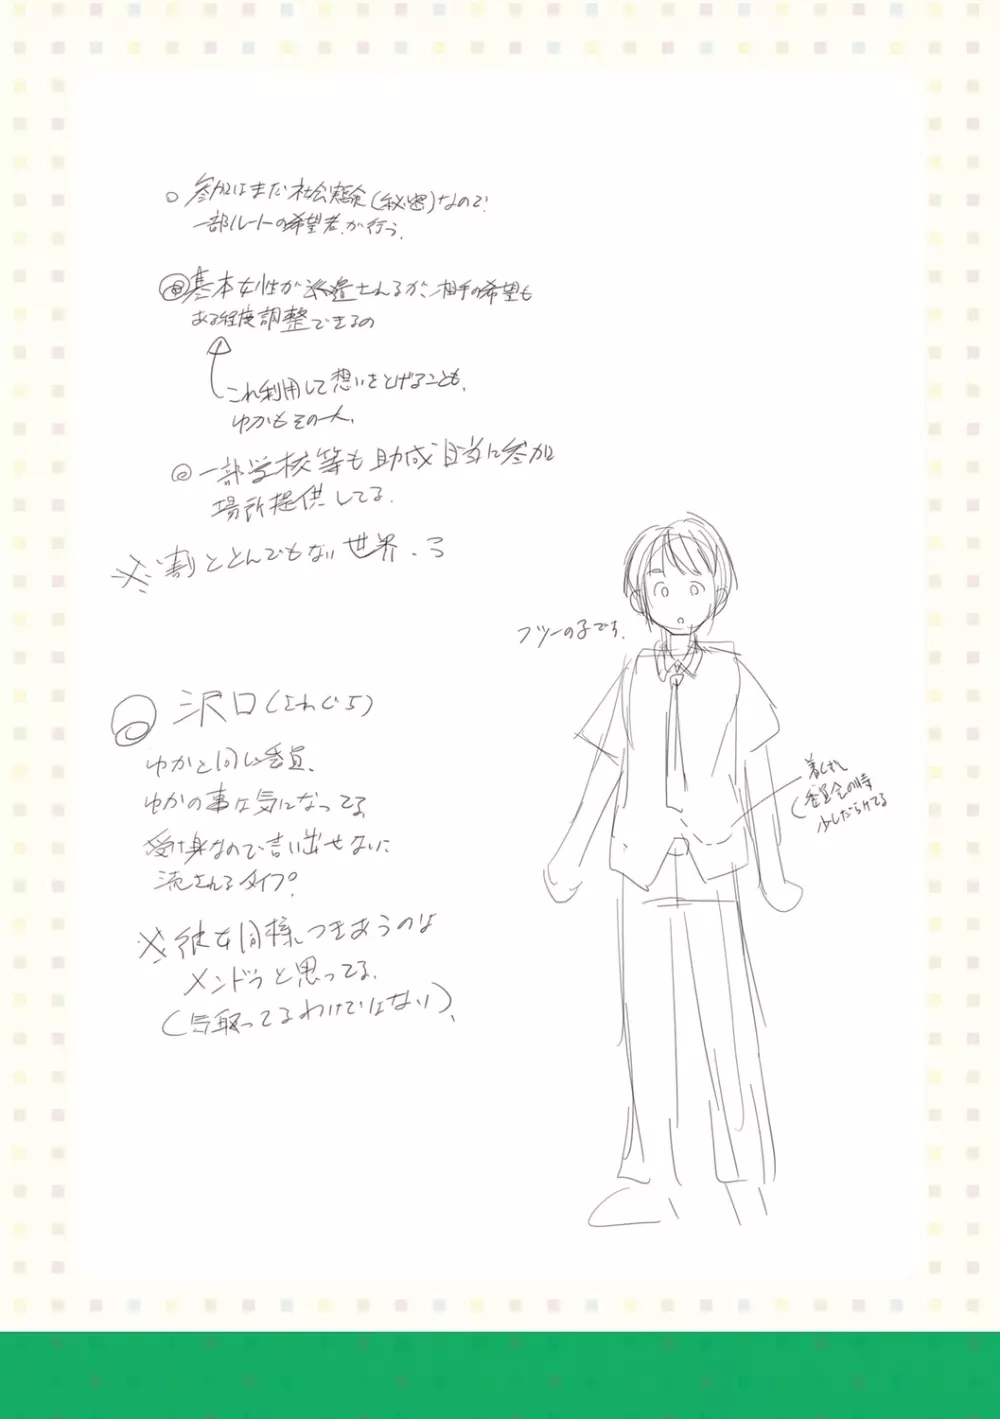 ○ 参加はまだ社会実験(秘密)なので
一部ルートの希望者が行う。
◎基本女性が派遣されるが、相手の希望も
ある程度調整できるの
これ利用して想いをとげることも。
ゆかもその一人。
◎一部学校等も助成目当に参加
場所提供してる。
※割ととんでもない世界.
フツーの子です。
◎ 沢口(さわぐち)
ゆかと同じ委員、
ゆかの事は気になってる
受け身なので言い出せないに
流されるタイプ。
※彼も同様、つきあうのは
メンドウと思ってる。
(気取ってるわけではない)、
着くずし
(委員会の時
少しだらけてる